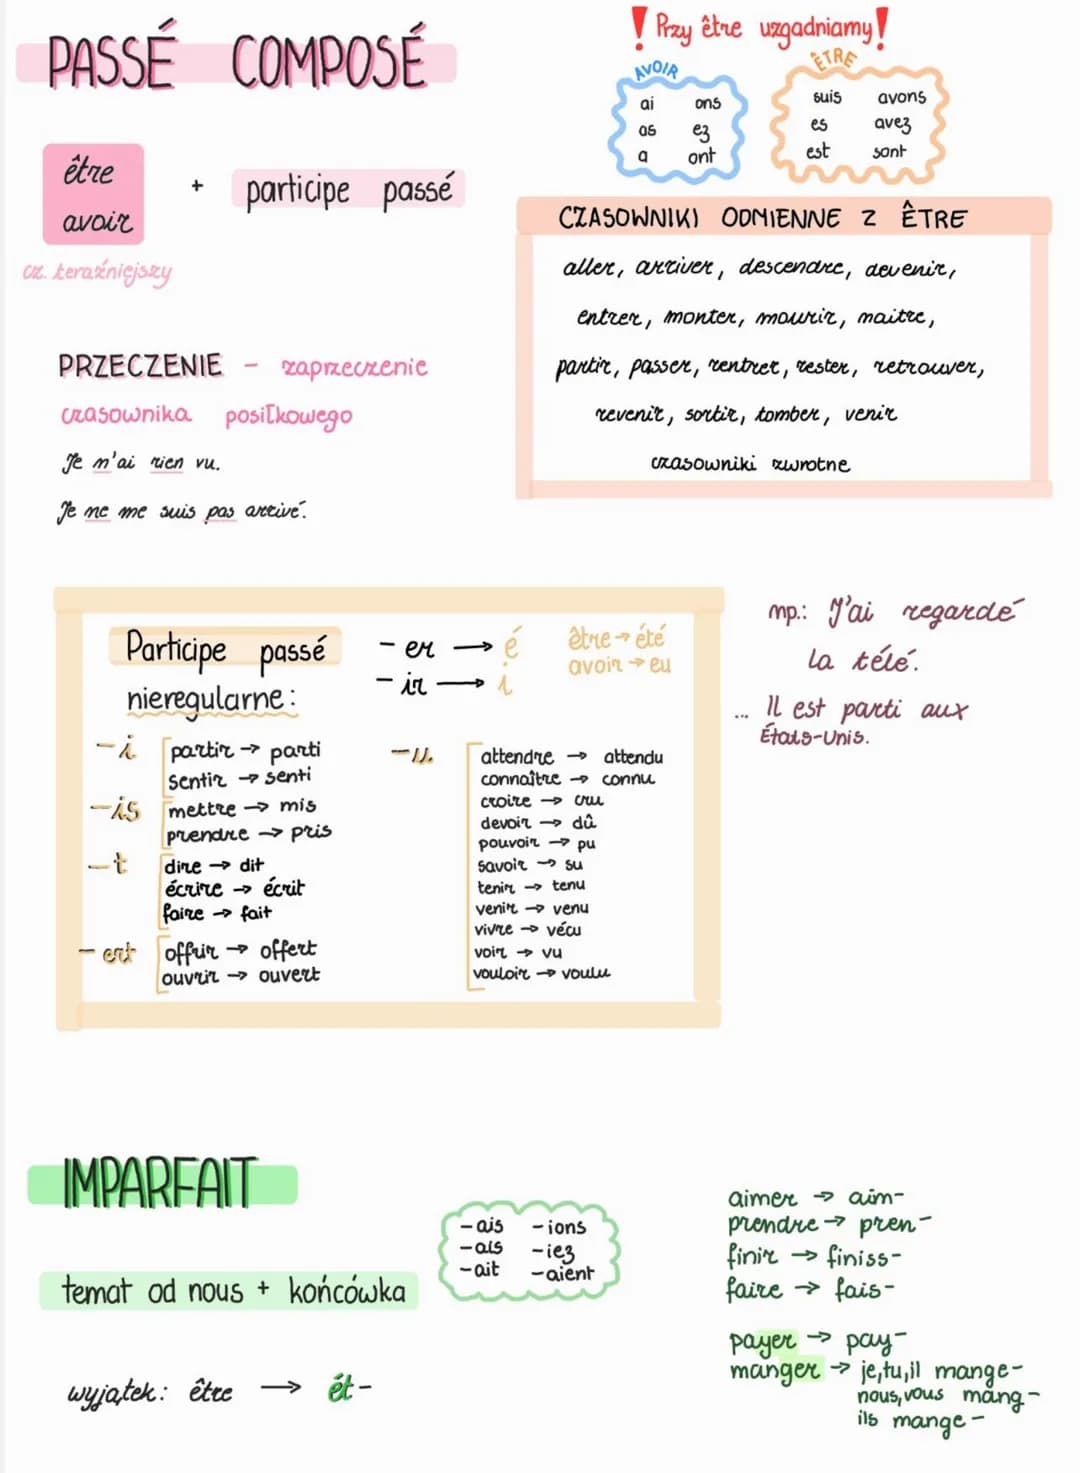 PASSÉ COMPOSÉ
! Przy être uzgadniamy!
AVOIR
ai ons
as ez
a ont
ÊTRE
suis avons
es avez
est sont
être
avoir
+ participe passé
cz. teraźniejszy
CZASOWNIKI ODMIENNE Z ÊTRE
aller, arriver, descendre, devenir,
entrer, monter, mourir, maitre,
partir, passer, rentrer, rester, retrouver,
revenir, sortir, tomber, venir
czasowniki zwrotne
PRZECZENIE - zaprzeczenie
czasownika posiłkowego
Je m'ai rien vu.
Je ne me suis pas arrivé.
Participe passé
nieregularne:
-er → é
-ir → i
être → été
avoir → eu
-i
partir → parti
sentir → senti
-is
mettre → mis
prendre → pris
-t
dire → dit
écrire → écrit
faire → fait
-ert
offrir → offert
ouvrir → ouvert
-u
attendre → attendu
connaître → connu
croire → cru
devoir → dû
pouvoir → pu
savoir → su
tenir → tenu
venir → venu
vivre → vécu
voir → vu
vouloir → voulu
mp.: J'ai regardé
la télé.
... Il est parti aux
États-Unis.
IMPARFAIT
temat od nous + końcówka
-ais -ions
-ais -iez
-ait -aient
wyjątek: être → ét-
aimer → aim-
prendre → pren-
finir → finiss-
faire → fais-
payer → pay-
manger → je,tu,il mange-
nous,vous mang-
ils mange-